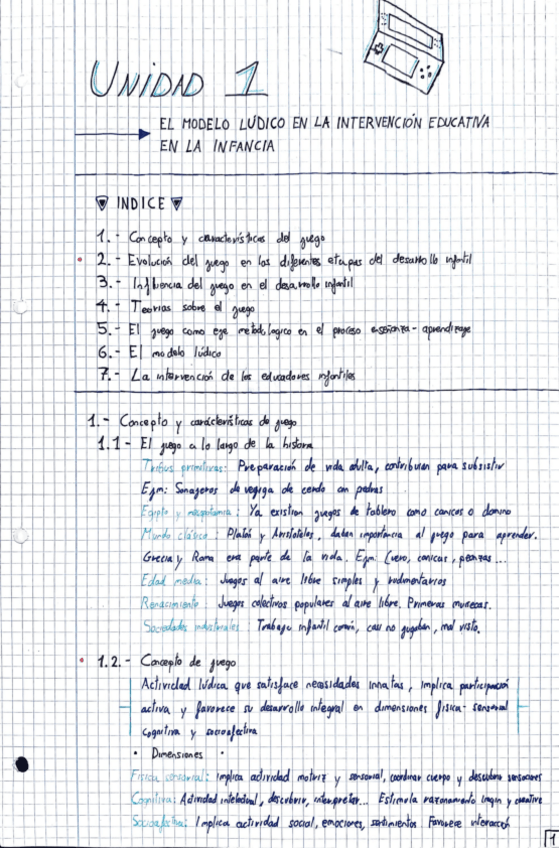 UNIDAD 1
EL MODELO LÚDICO EN LA INTERVENCIÓN EDUCATIVA
EN LA INFANCIA
INDICE
1.- Concepto y características del juego
2.- Evolución del juego en las diferentes etapas del desarrollo infantil
3.- Influencia del juego en el desarrollo infantil
4.- Teorías sobre el juego
5.- El juego como eje metodologico en el proceso enseñanza-aprendizaje
6.- El modelo lúdico
7.- La intervención de los educadores infantiles
1.- Concepto y carácterísticas de juego
1.1- El juego a lo largo de la historia
Tribus primitivas: Preparación de vida adulta, contribuian para subsistir
Ejm: Sonajeros de vegiga de cerdo con piedras
Egipto y mesopotamia: Ya existian juegos de tablero como canicas o domino
Mundo clásico: Platón y Aristóteles, daban importancia al juego para aprender.
Grecia y Roma era parte de la vida. Ejm: Cuero, canicas, peonzas...
Edad media: Juegos al aire libre simples y rudimentarios
Renacimiento: Juegos colectivos populares al aire libre. Primeras muñecas.
Sociedades industriales: Trabajo infantil común, casi no jugaban, mal visto.
1.2.- Concepto de juego
Actividad lúdica que satisface necesidades innatas, implica participación
activa y favorece su desarrollo integral en dimensiones física-sensorial
cognitiva y socioafectiva
• Dimensiones •
Física sensorial: Implica actividad motriz y sensorial, coordinar cuerpo y descubrir sensaciones
Cognitiva: Actividad intelectual, descubrir, interpretar... Estimula razonamiento y creative
Socioafectiva: Implica actividad social, emociones, sentimientos. Favorece interacción
1